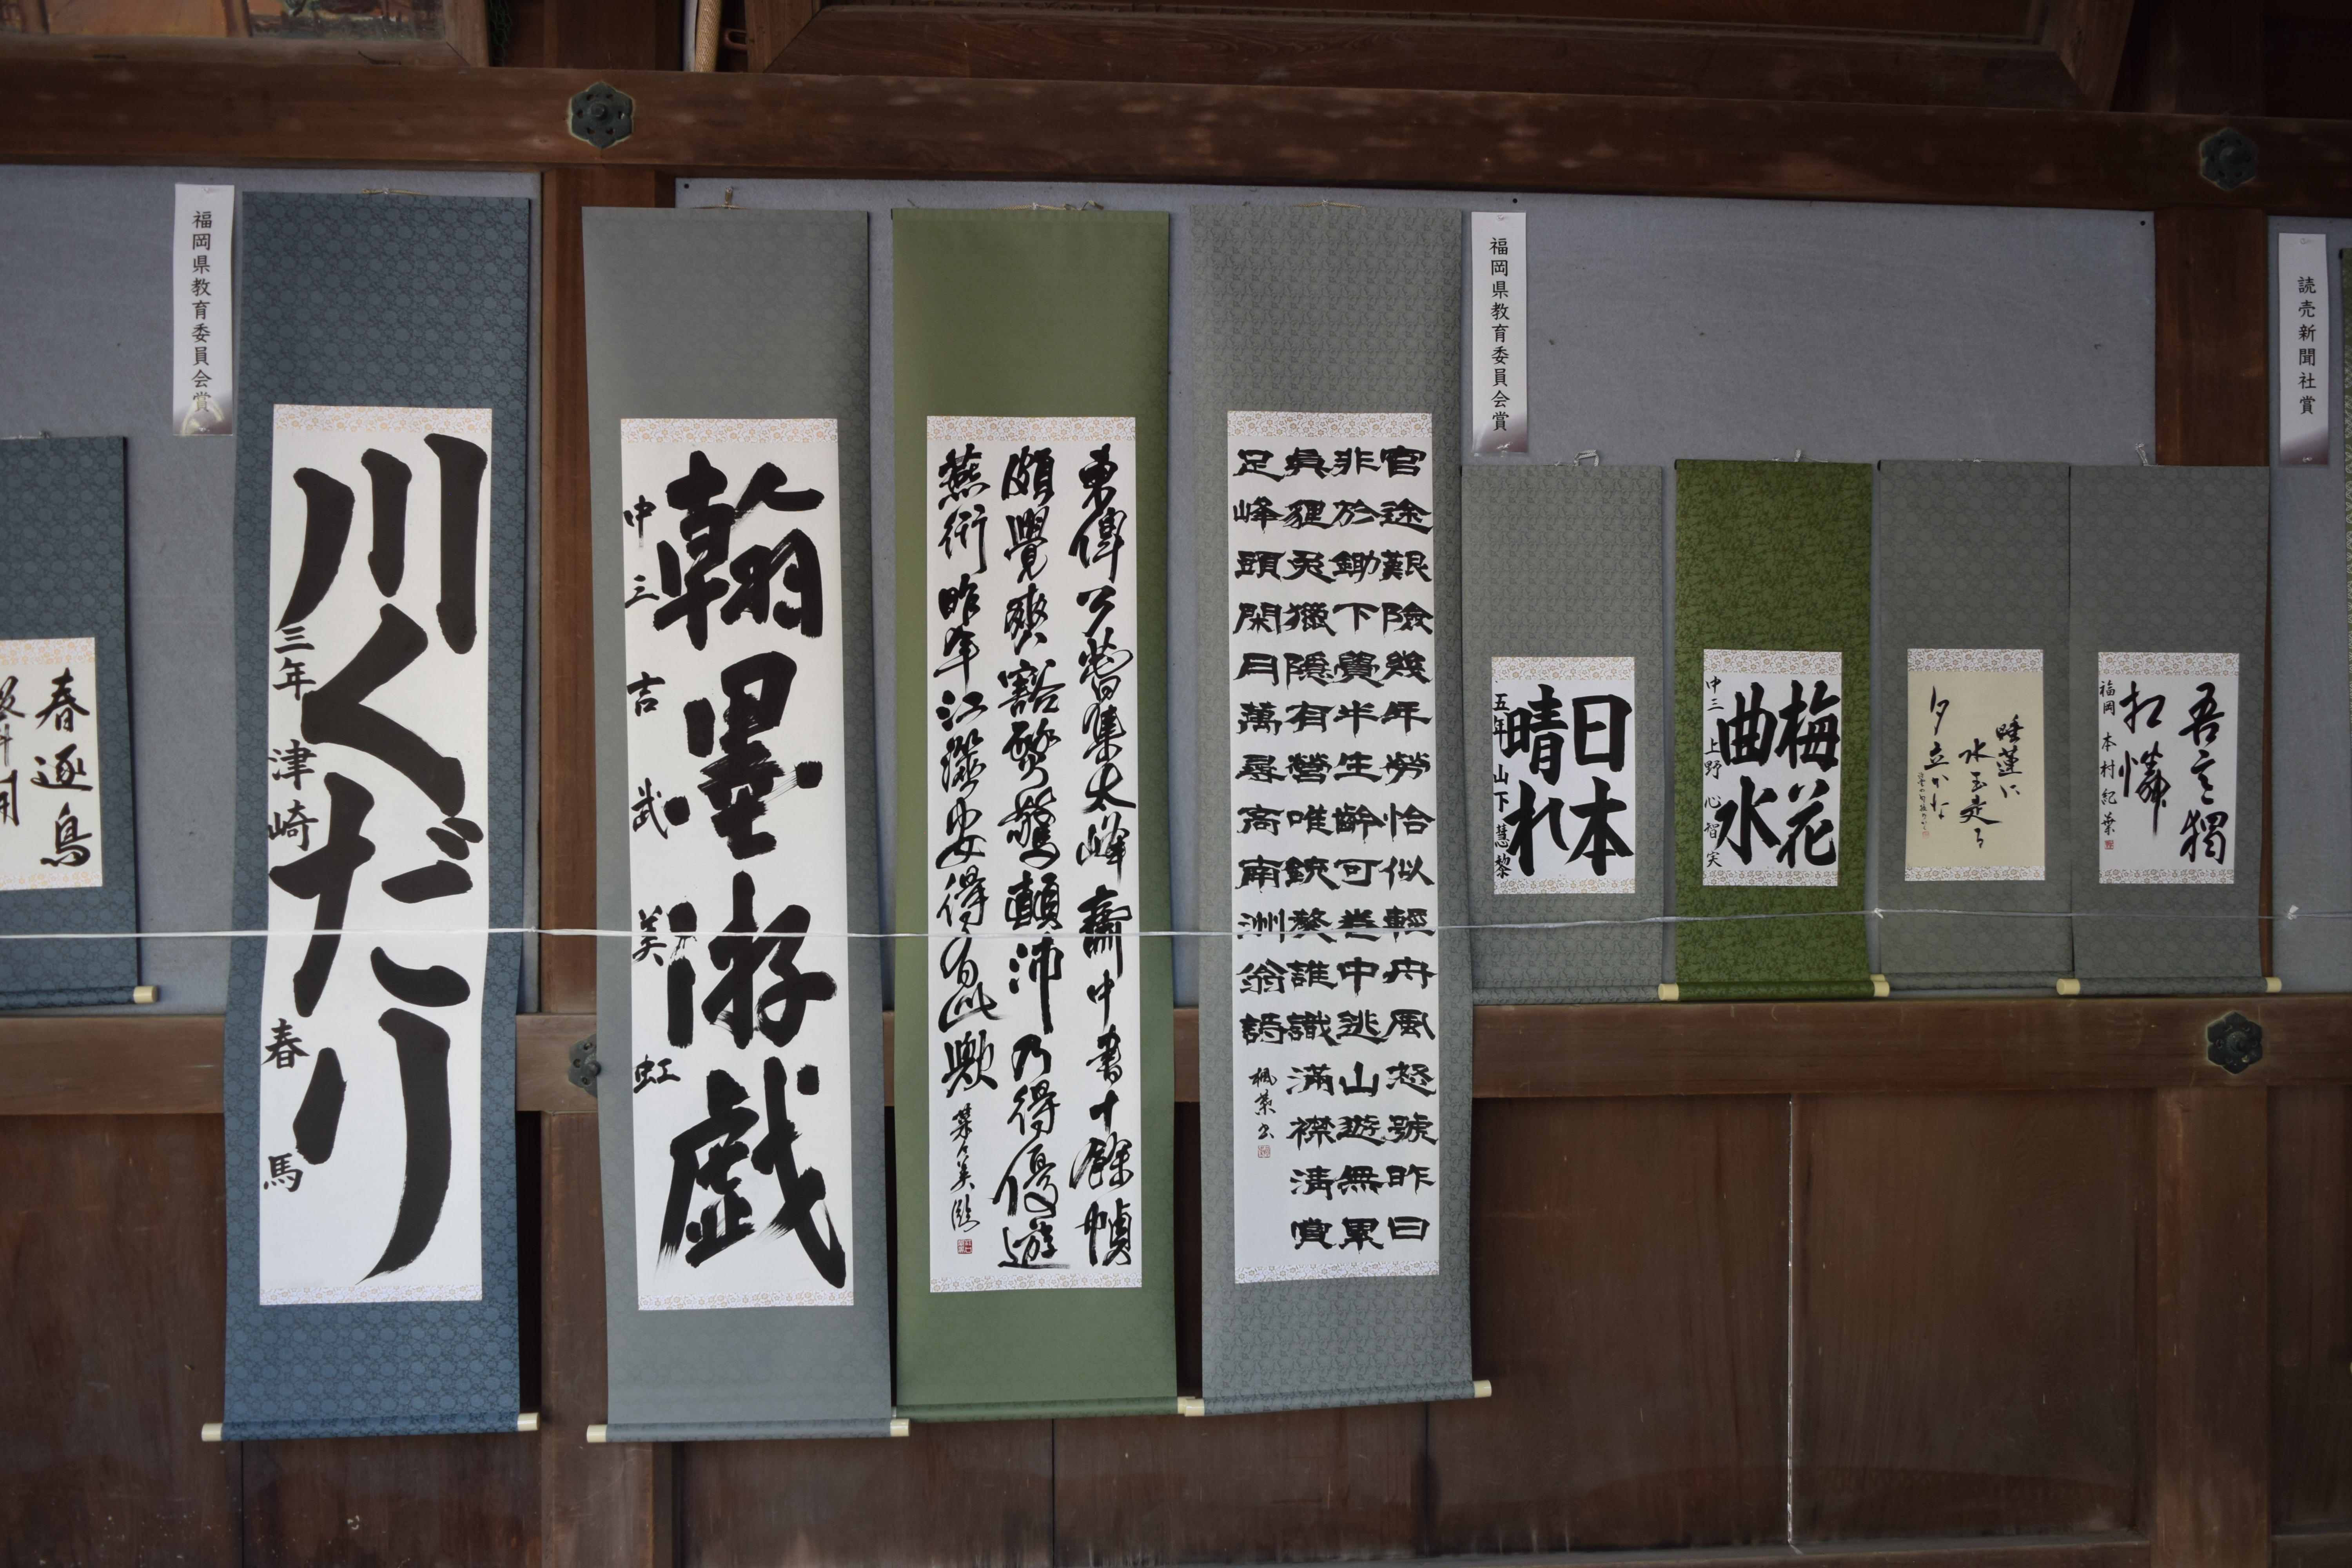 春逐鳥
福岡県教育委員会賞
川くだり
三年 津崎 春馬
翰墨游戯
中三 吉武美虹
集太峰齋中書十餘幀
頗覺爽豁 顛沛乃得優遊
燕衎昨年江 安得有此歟
官途艱險幾年勞恰似輕舟風怒號昨日
非於鋤下覺半生齢可卷中逃山遊無累
真狸兎獵隠有營唯銃獒誰識滿襟清賞
足峰頭閑月萬尋高南洲翁詩
福岡県教育委員会賞
日本
晴れ
五年 山下慧黎
梅花
曲水
中三 上野 心智実
睡蓮に
水玉走る
夕立かな
吾 獨
憐
福岡 本村紀葉
読売新聞社賞